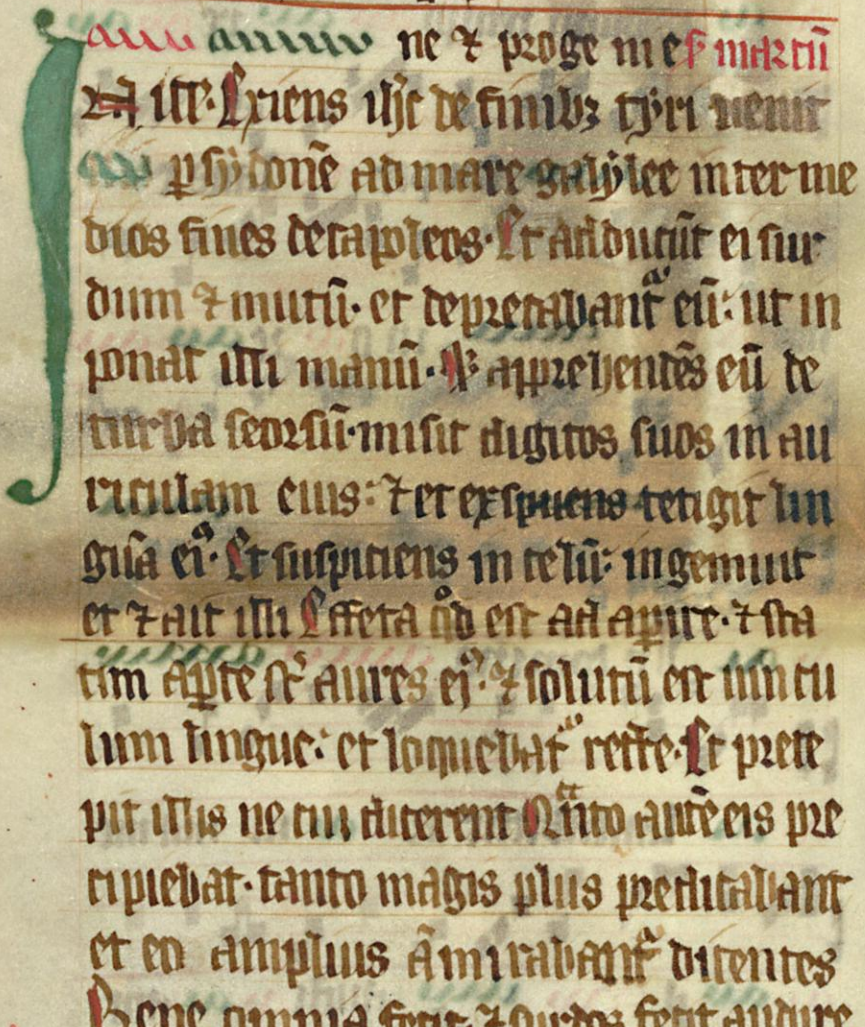 ne ⁊ proge nies s̄ marcū
iłł. Exiens ih̄c de finibꝫ tyri venit
ꝑ sydonē ad mare galylee inter me
dios fines decapoleos. Et adducūt ei sur
dum ⁊ mutū. et deprecabant᷑ eū: ut in
ponat illi manū. Et apprehendēs eū de
turba seorsū. misit digitos suos in au
riculam eius: ⁊ et exspuens tetigit lin
gūa eiꝰ. Et suspiciens in celū: ingemuit
et ⁊ ait illi Effeta qͦd est ad aꝑire. ⁊ sta
tim aꝑte st̄ aures eiꝰ. ⁊ solutū est uincu
lum lingue: et loquebat᷑ recte. Et prece
pit illis ne cui dicerent Qͣnto autē eis pre
cipiebat. tanto magis plus predicabant
et eo amplius āmirabant᷑ dicentes
Bene omnia fecit. ⁊ surdos fecit audire